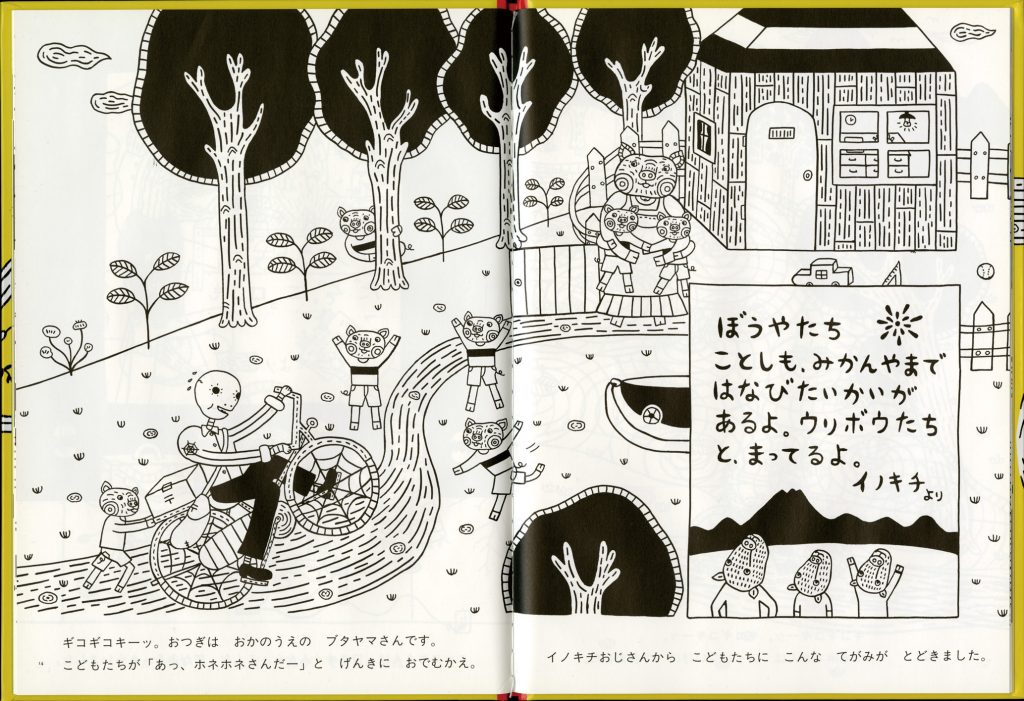 ぼうやたち
ことしも、みかんやまで
はなびたいかいが
あるよ。ウリボウたち
と、まってるよ。
イノキチより
ギコギコキーッ。おつぎは おかのうえの ブタヤマさんです。
こどもたちが「あっ、ホネホネさんだー」と げんきに おでむかえ。
14
イノキチおじさんから こどもたちに こんな てがみが とどきました。